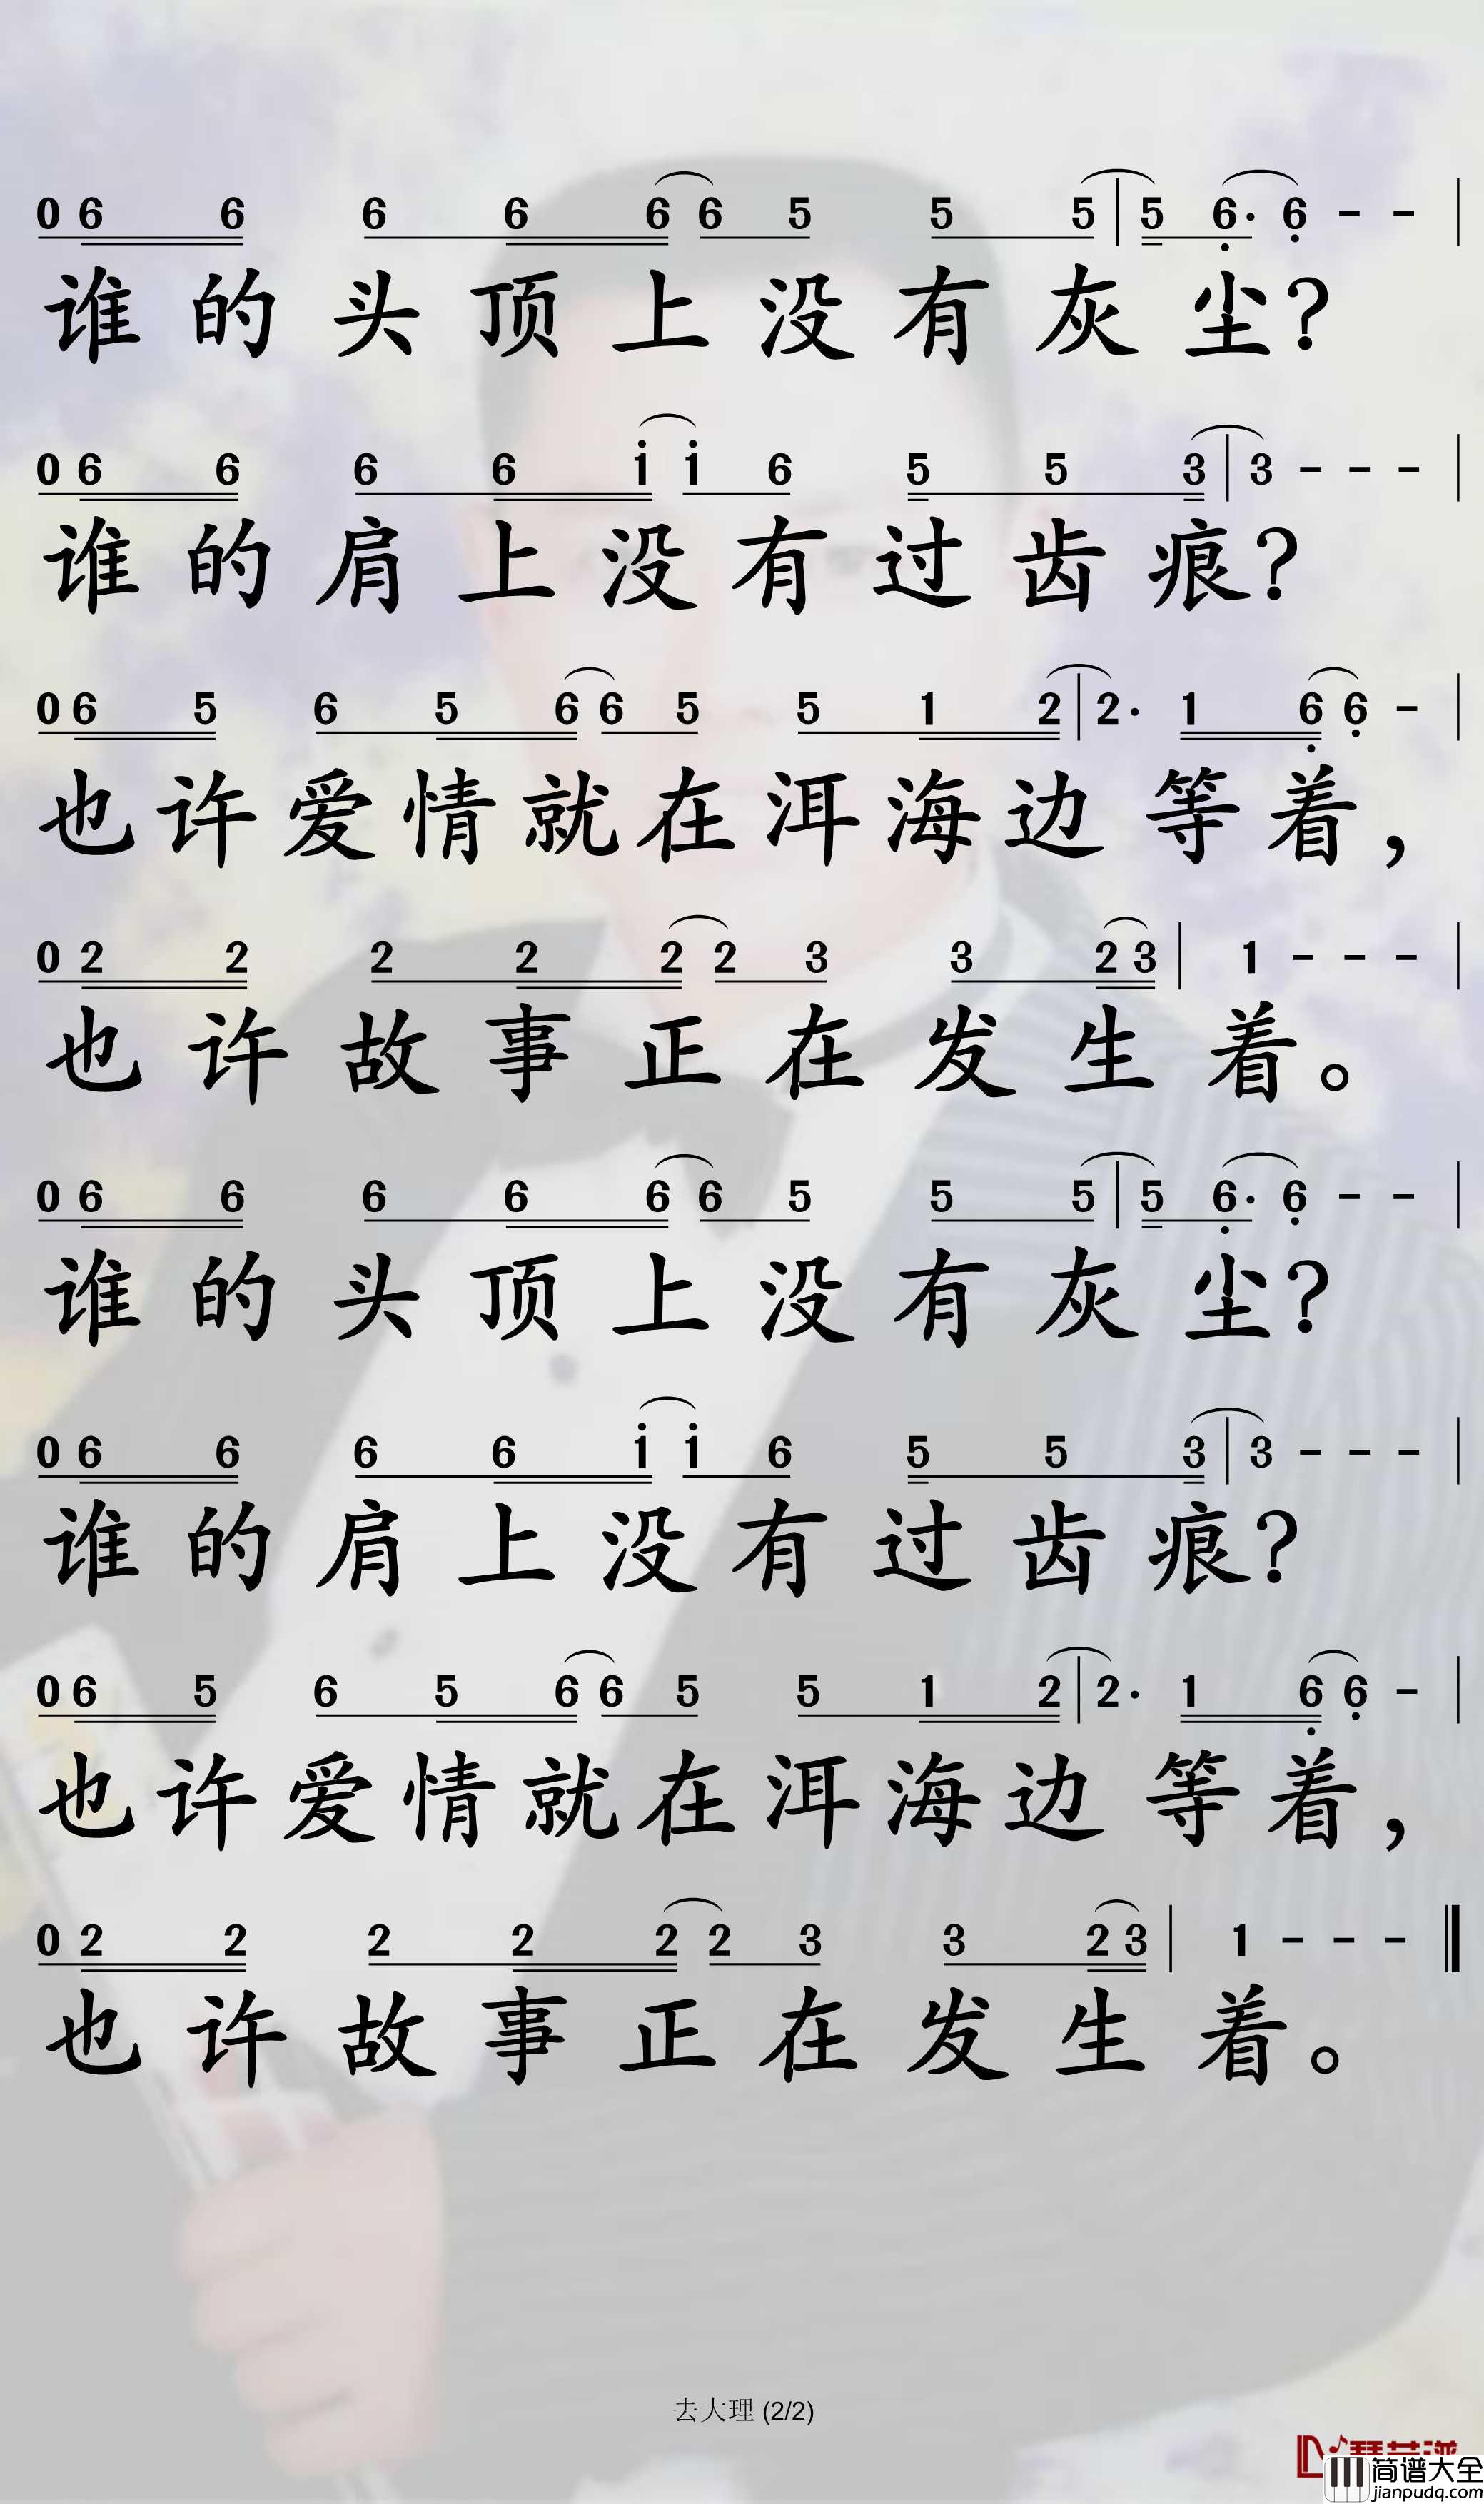 0 6 6 6 6 6 6 5 5 5 | 5 6· 6 - - |
谁的头顶上没有灰尘?
0 6 6 6 6 i i 6 5 5 3 | 3 - - - |
谁的肩上没有过齿痕?
0 6 5 6 5 6 6 5 5 1 2 | 2· 1 6 6 - |
也许爱情就在洱海边等着，
0 2 2 2 2 2 2 3 3 2 3 | 1 - - - |
也许故事正在发生着。
0 6 6 6 6 6 6 5 5 5 | 5 6· 6 - - |
谁的头顶上没有灰尘?
0 6 6 6 6 i i 6 5 5 3 | 3 - - - |
谁的肩上没有过齿痕?
0 6 5 6 5 6 6 5 5 1 2 | 2· 1 6 6 - |
也许爱情就在洱海边等着，
0 2 2 2 2 2 2 3 3 2 3 | 1 - - - ‖
也许故事正在发生着。
去大理 (2/2)
简谱大全
jianpudq.com